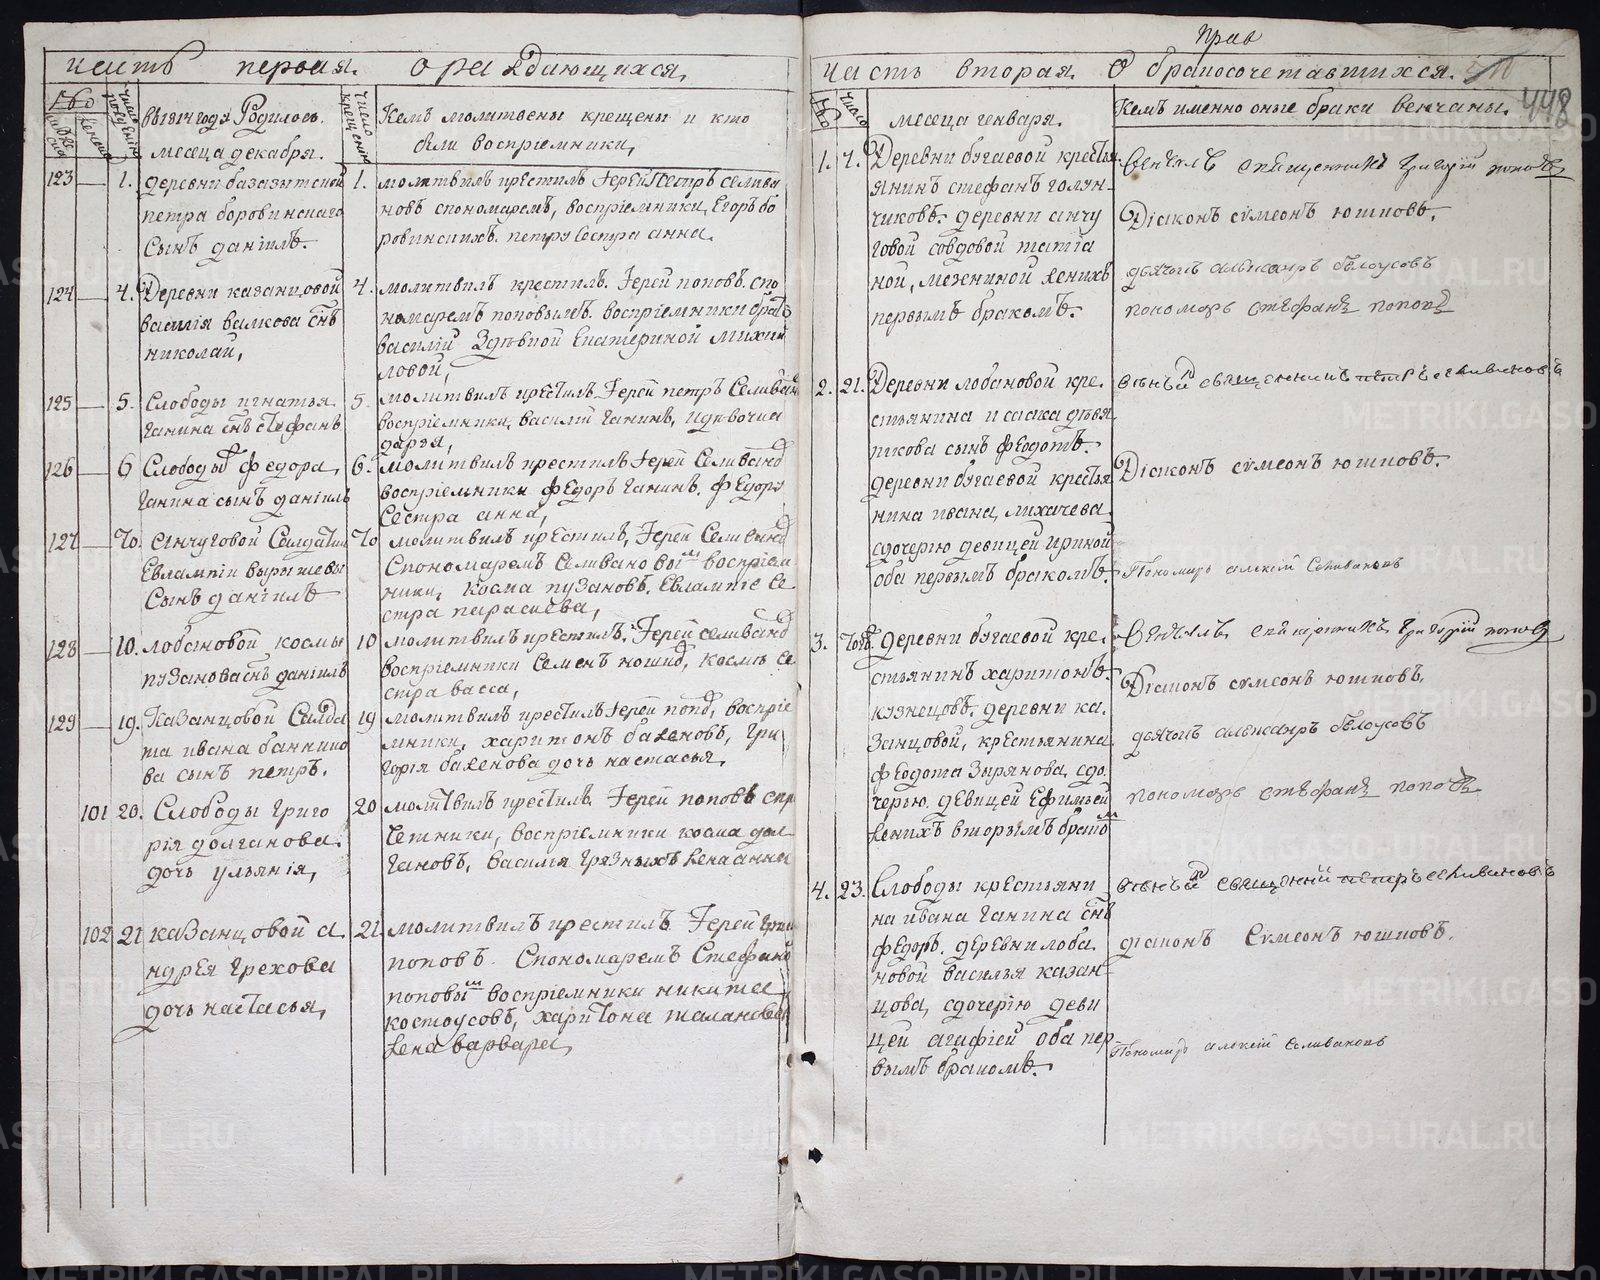 часть первая. о раждающихся.
въ 1814 году Родилось.
месеца декабря.
Кемъ молитвены крещены и кто
были восприемники,
123 1. деревни
петра боровинскаго
сынъ даніилъ.
1. молитвилъ крестилъ Іерей Петръ селива
новъ спономаремъ, восприемники, Егоръ бо
ровинскихъ. петру сестра анна.
124 4. Деревни казанцовой
василія валкова снъ
николай,
4. молитвилъ крестилъ. Іерей поповъ. спо
номаремъ поповымъ. восприемники
василій Здевкой Екатериной михай
ловой,
125 5. Слободы игнатья
ганина снъ стефанъ
5. молитвилъ крестилъ Іерей петръ Селиван
восприемники, василій ганинъ, идевочка
дарья,
126 6 Слободы федора,
ганина сынъ даніилъ
6. молитвилъ крестилъ Іерей Селиванов
восприемники федоръ ганинъ. федору
сестра анна,
127 7о. анчуговой Салдатки
Евлампіи
Сынъ даніилъ
7о молитвилъ крестилъ, Іерей Селиванов
Спономаремъ Селивановым восприем
ники, косма пузановъ, Евлампіе се
стра параскева,
128 10. лобановой космы
пузанова снъ даніилъ
10 молитвилъ крестилъ. Іерей селиванов
восприемники Семенъ космы се
стра васса,
129 19. Казанцовой Салда
та ивана баннико
ва сынъ петръ.
19 молитвилъ крестилъ Іерей попов, восприе
мники, харитонъ баженовъ, гри
горія баженова дочь настасья,
101 20. Слободы григо
рія долганова.
дочь ульянія,
20 молитвилъ крестилъ Іерей поповъ
четники, восприемники косма дол
гановъ, василья грязныхъ жена анна
102 21 казанцовой а
ндрея грехова
дочь настасья,
21 молитвилъ крестилъ Іерей григо
поповъ. Спономаремъ Стефано
поповым восприемники никита
костоусовъ, харитона
жена варвара,
прав
часть вторая. О бракосочетавшихся.
448
месеца генваря.
Кемъ именно оные браки венчаны.
1. 7. Деревни бугаевой кресть
янинъ стефанъ голун
чиковъ. деревни анчу
говой совдовой татіа
ной, межениной женихъ
первымъ бракомъ.
Венчалъ священникъ Григорій поповъ
Діаконъ сумеонъ юшковъ.
дьячокъ александръ белоусовъ
пономарь стефанъ поповъ
2. 21. Деревни лобановой кре.
стьянина исаака дьяч
кова сынъ федотъ.
деревни бугаевой крестья
нина ивана, лихачева.
сдочерью девицей ириной
оба первымъ бракомъ.
венчал священникъ петръ селивановъ
Діаконъ сумеонъ юшковъ.
Пономарь алексій Селивановъ
3. деревни бугаевой кре.
стьянинъ харитонъ.
кузнецовъ. деревни ка.
занцовой, крестьянина
федота Зырянова, сдо.
черью. девицей Ефимьей
женихъ вторымъ браком
Венчалъ священникъ григорій поповъ
Діаконъ сумеонъ юшковъ.
дьячокъ александръ белоусовъ
пономарь стефанъ поповъ
4. 23. Слободы крестьяни
на ивана ганина снъ
федоръ. деревни лоба.
новой василья казан
цова, сдочерію деви
цей агафіей оба пер
вымъ бракомъ.
венчал священни петръ селивановъ
діаконъ Сумеонъ юшковъ.
Пономарь алексій Селивановъ
METRIKI.GASO-URAL.RU